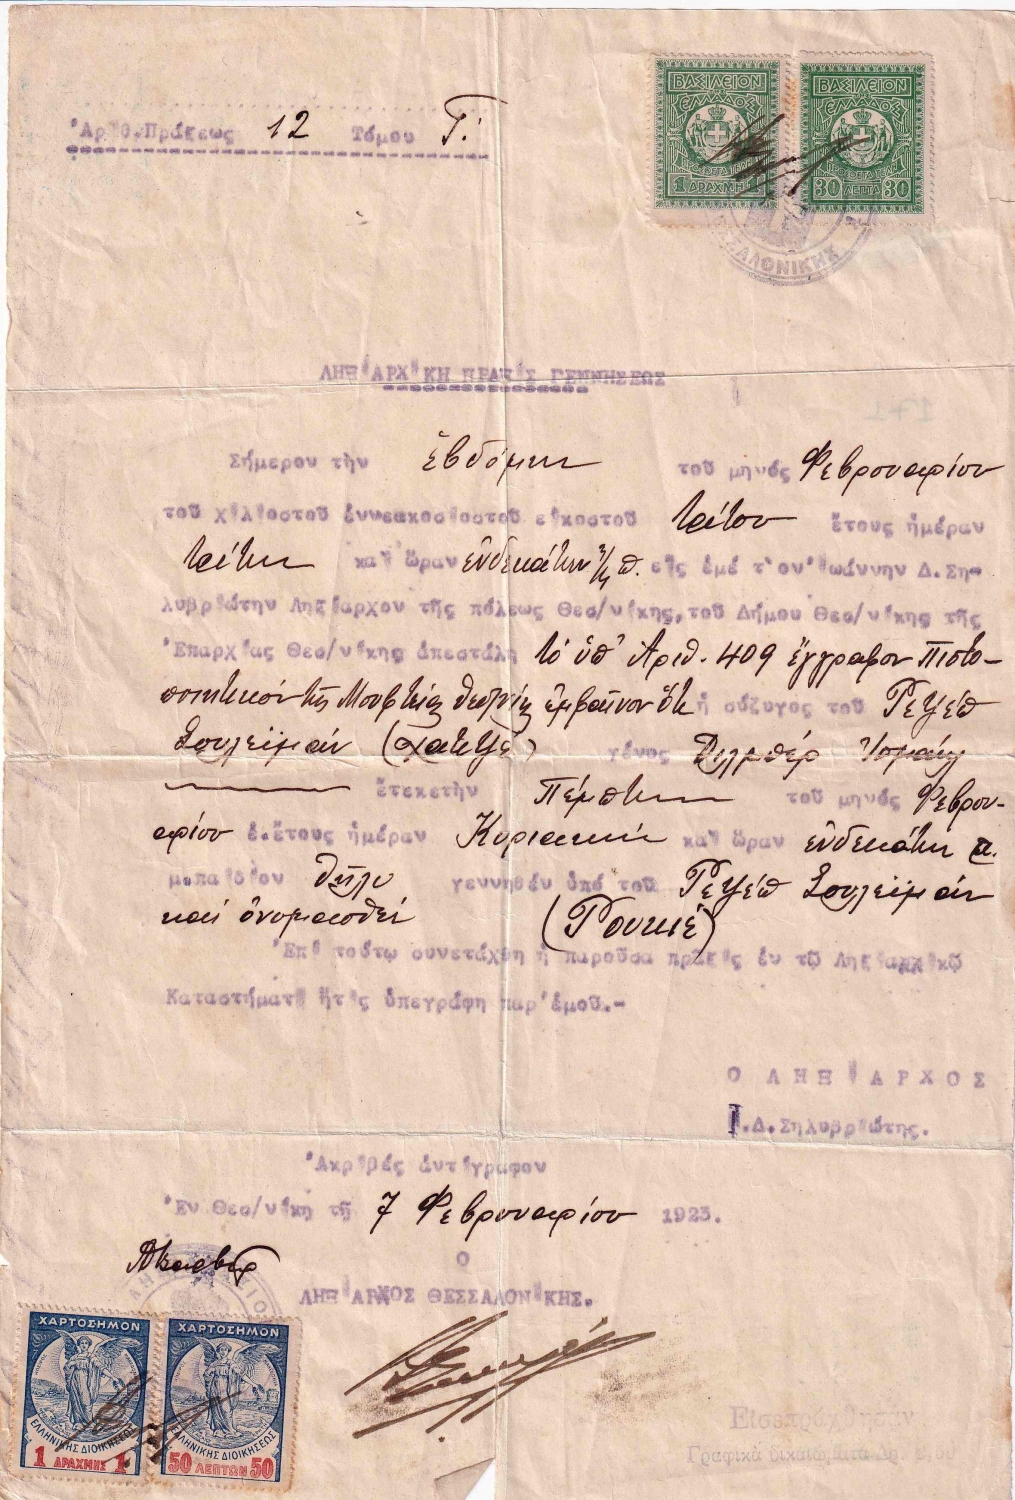 Ἀριθ.Πράξεως 12 Τόμου Γ.'
ΒΑΣΙΛΕΙΟΝ ΕΛΛΑΔΟΣ
1 ΔΡΑΧΜΗ 1
ΒΑΣΙΛΕΙΟΝ ΕΛΛΑΔΟΣ
30 ΛΕΠΤΑ 30
ΣΑΛΟΝΙΚΗΣ
ΛΗΞΙΑΡΧΙΚΗ ΠΡΑΞΙΣ ΓΕΝΝΗΣΕΩΣ
Σήμερον τὴν ἑβδόμην τοῦ μηνός Φεβρουαρίου
τοῦ χιλιοστοῦ ἐννεακοσιοστοῦ εἰκοστοῦ τρίτου ἔτους ἡμέραν
τρίτην καὶ ὥραν ἑνδεκάτην π.μ. εἰς ἐμέ τὸν Ἰωάννην Δ.Ση-
λυβριώτην Ληξίαρχον τῆς πόλεως Θεσ/νίκης, τοῦ Δήμου Θεσ/νίκης τῆς
Ἐπαρχίας Θεσ/νίκης ἀπεστάλη τὸ ὑπ' Ἀριθ. 409 ἔγγραφον πιστο-
ποιητικόν τῆς Μουφτείας Θεσ/νίκης ἐμφαῖνον ὅτι ἡ σύζυγος τοῦ Ρετζέπ
Σουλεϊμάν (χατζῆ) γένος Ἰσμαήλ
ἔτεκε τὴν Πέμπτην τοῦ μηνός Φεβρου-
αρίου ἐ.ἔτους ἡμέραν Κυριακήν καὶ ὥραν ἑνδεκάτην π.
μ. παιδίον θῆλυ γεννηθέν ὑπό τοῦ Ρετζέπ Σουλεϊμάν
καί ὀνομασθέν (Ρουκιέ)
Ἐπί τούτῳ συνετάχθη ἡ παροῦσα πρᾶξις ἐν τῷ Ληξιαρχικῷ
Καταστήματι ἥτις ὑπεγράφη παρ' ἐμοῦ.-
Ο ΛΗΞΙΑΡΧΟΣ
Ι.Δ.Σηλυβριώτης.
Ἀκριβές ἀντίγραφον
Ἐν Θεσ/νίκη τῇ 7 Φεβρουαρίου 1923.
Ο
ΛΗΞΙΑΡΧΟΣ ΘΕΣΣΑΛΟΝΙΚΗΣ.
ΧΑΡΤΟΣΗΜΟΝ
ΕΛΛΗΝΙΚΗΣ ΔΙΟΙΚΗΣΕΩΣ
1 ΔΡΑΧΜΗΣ 1
ΧΑΡΤΟΣΗΜΟΝ
ΕΛΛΗΝΙΚΗΣ ΔΙΟΙΚΗΣΕΩΣ
50 ΛΕΠΤΩΝ 50
Εἰσεπράχθησαν
Γραφικὰ δικαιώματα Δρ.